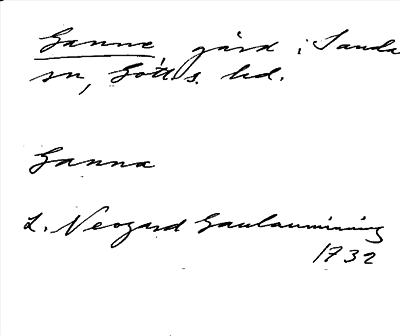 Ganne, gård i Sanda
sn, Gotl. s. hd.
Ganna
L. Neogard Gaulauminning
1732